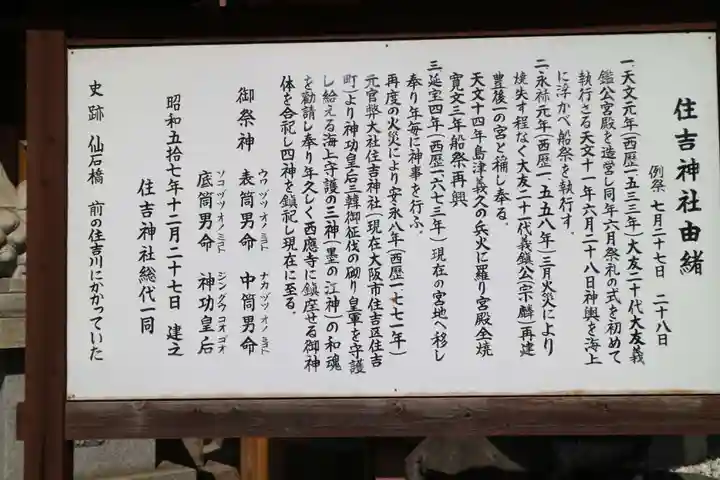 住吉神社由緒
例祭 七月二十七日 二十八日
一、天文元年(西歴一五三二年)大友二十代大友義
鑑公宮殿を造営し同年六月祭礼の式を初めて
執行さる天文十一年六月二十八日神輿を海上
に浮かべ船祭を執行す。
二、永禄元年(西歴一、五五八年)三月火災により
焼失す程なく大友二十一代義鎮公(宗麟)再建
豊後一の宮と稱し奉る。
天文十四年島津義久の兵火に罹り宮殿全焼
寛文三年船祭再興
三、延宝四年(西歴一六七三年)現在の宮地へ移し
奉り年毎に神事を行ふ。
再度の火災により安永八年(西歴一、七七一年)
元官弊大社住吉神社(現在大阪市住吉区住吉
町)より神功皇后三韓御征伐の砌り皇軍を守護
し給える海上守護の三神(墨の江神)の和魂
を勸請し奉り年久しく西應寺に鎮座せる御神
体を合祀し四神を鎮祀し現在に至る。
御祭神 表筒男命 中筒男命
ウワヅツオノミコト ナカヅツオノミコト
底筒男命 神功皇后
ソコヅツオノミコト ジングウコオゴオ
昭和五拾七年十二月二十七日 建之
住吉神社総代一同
史跡 仙石橋 前の住吉川にかかっていた